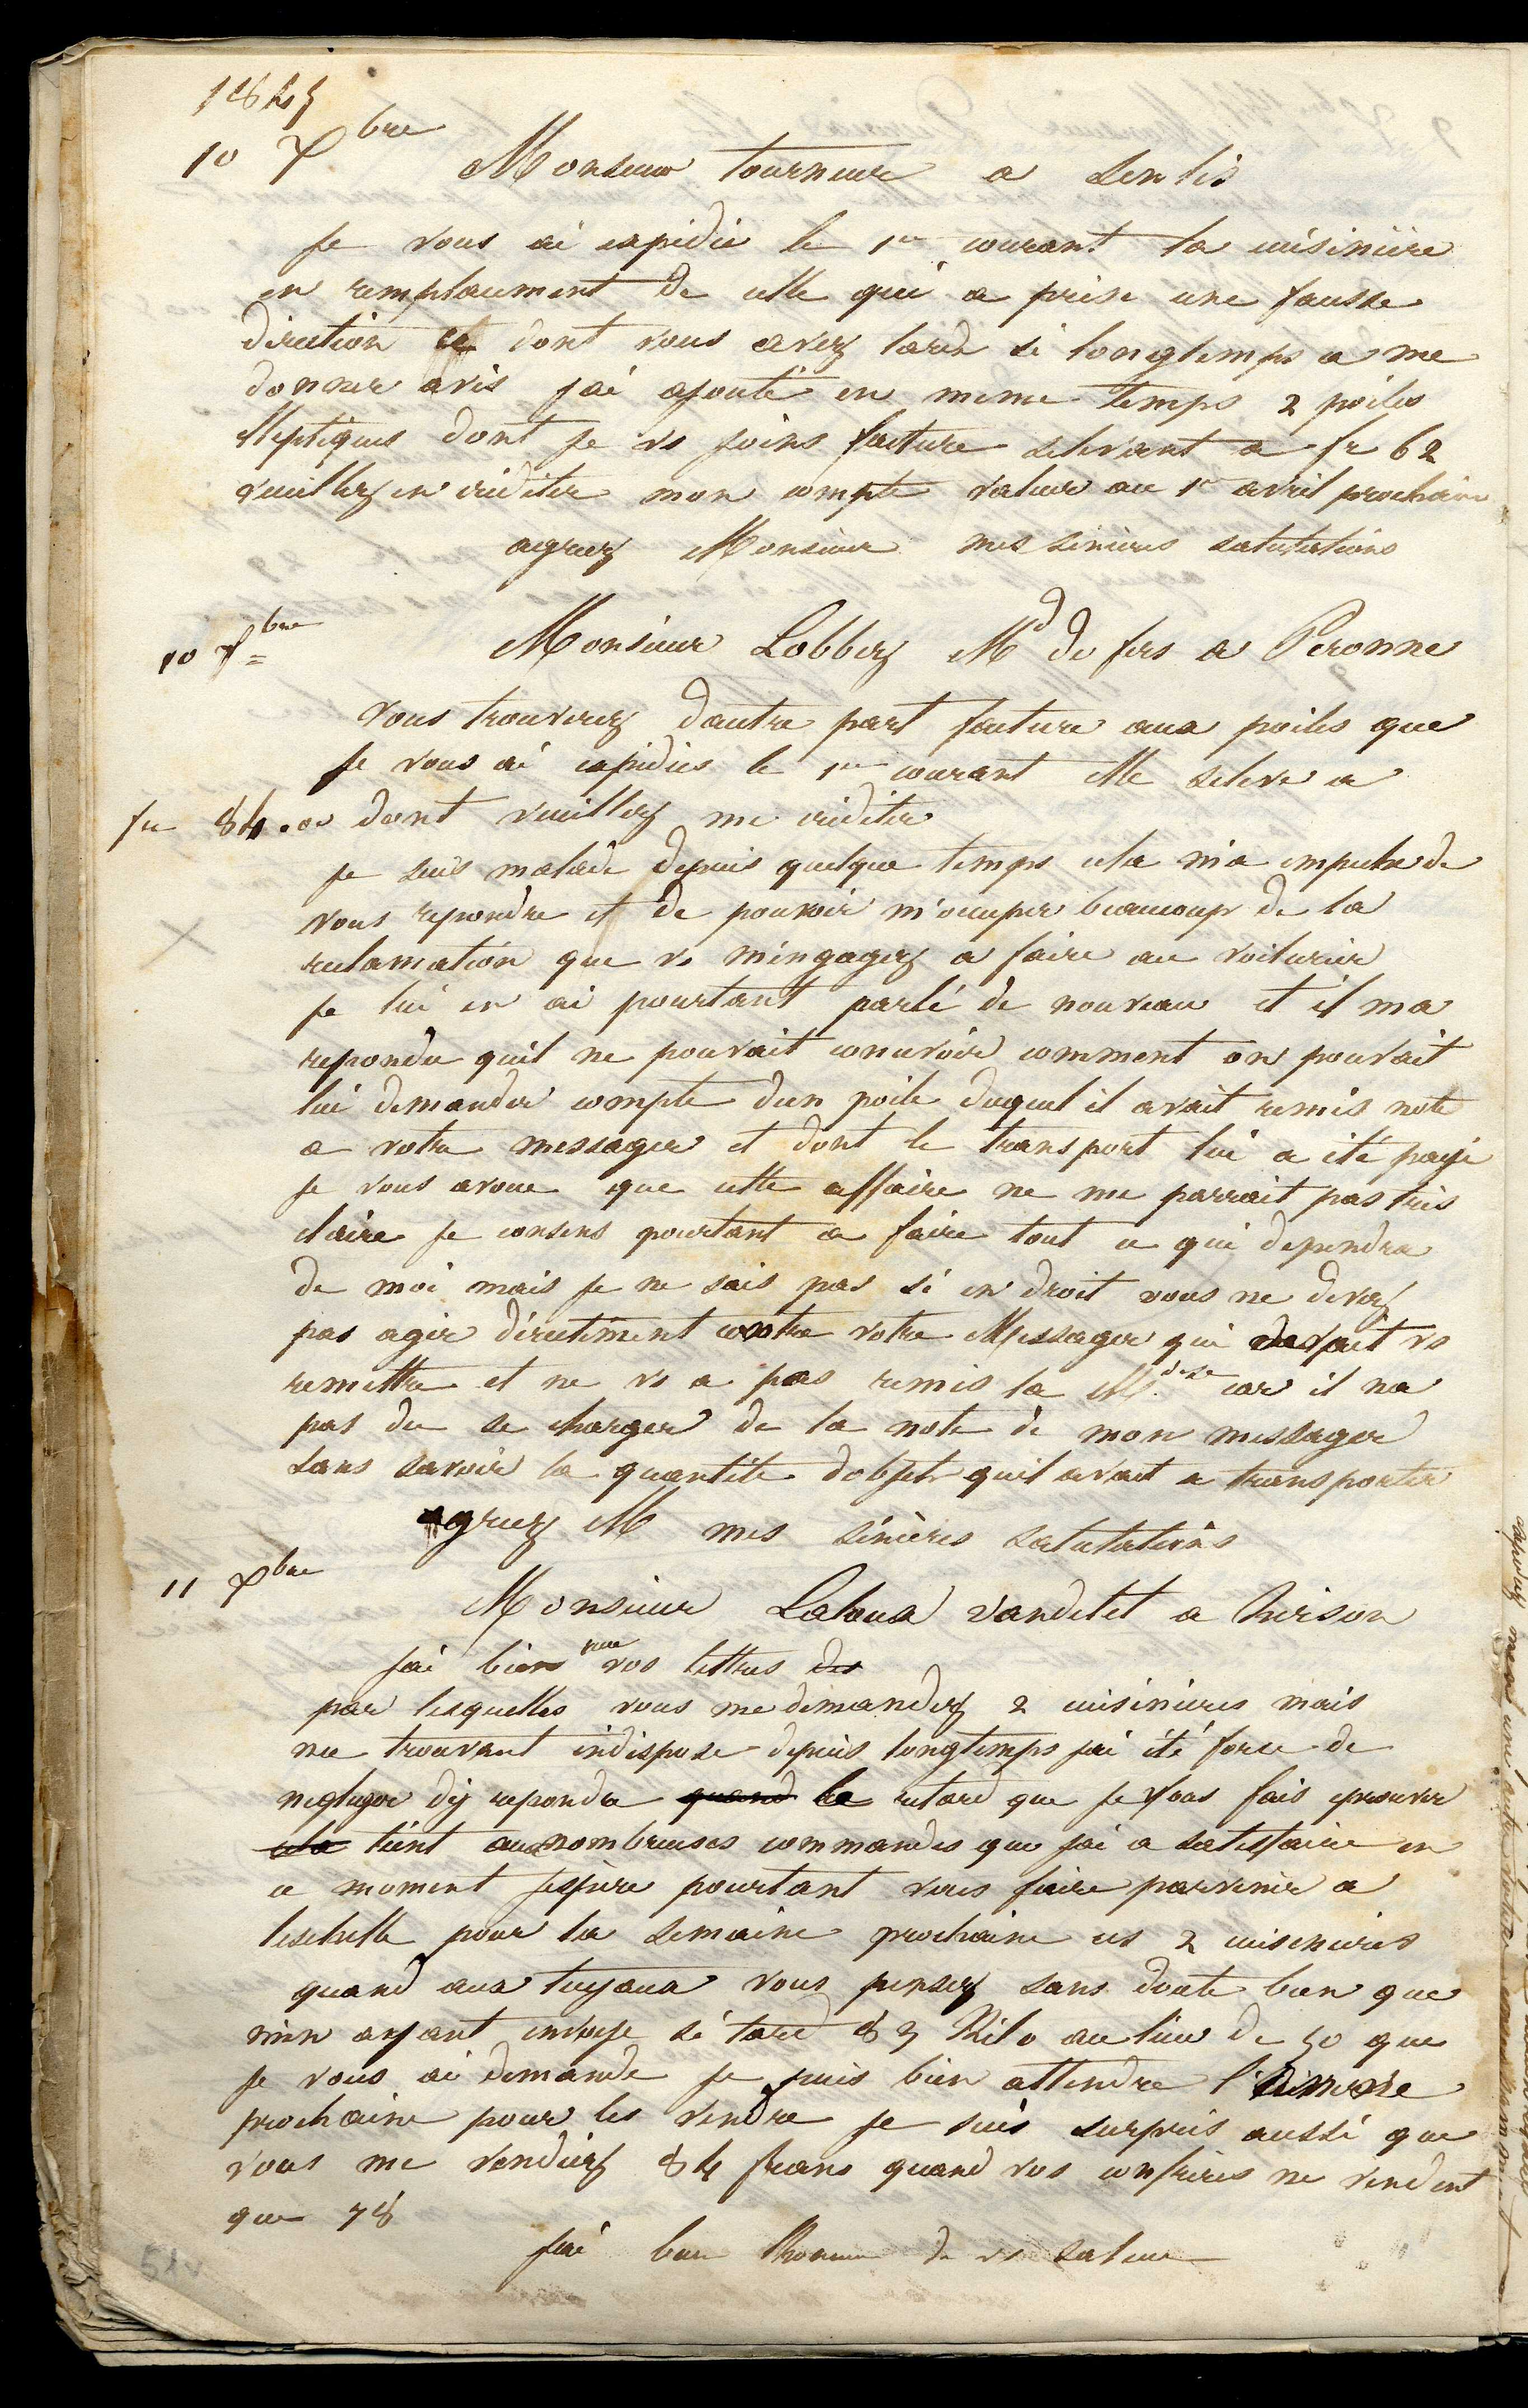 10 Xbre
Monsieur tourneur a Senlis
je vous ai expedié le 1er courant la cuisinière
en remplacement de celle qui a prise une fausse
direction et dont vous avez tardé si longtemps a me
donner avis j'ai ajouté en meme temps 2 poiles
eleptiques dont je vs joins facture selevant a fr 62
veuillez en créditer mon compte valeur au 1er avril prochain
agreez Monsieur mes sincères salutations
10 Xbre
Monsieur Lobbez Md de fers a Peronne
vous trouverez dautre part facture aux poiles que
je vous ai expédiés le 1er courant elle seleve a
fr 84.00 dont veuillez me créditer
je suis malade depuis quelque temps cela m'a empeché de
vous repondre et de pouvoir m'occuper beaucoup de la
reclamation que vs m'engagez a faire au voiturier
je lui en ai pourtant parlé de nouveau et il ma
repondu quil ne pouvait concevoir comment on pouvait
lui demander compte dun poile duquel il avait remis note
a votre messager et dont le transport lui a été payé
je vous avoue que cette affaire ne me parrait pas très
claire je consens pourtant a faire tout ce qui dependra
de moi mais je ne sais pas si en droit vous ne devez
pas agir directement contre votre Messager qui devait vs
remettre et ne vs a pas remis la Mdise car il na
pas du se charger de la note de mon messager
sans savoir la quantité dobjets quil avait a transporter
agreez M mes sincères salutations
11 Xbre
Monsieur Lahoua vandelet a hirson
jai bien recu vos lettres des
par lesquelles vous me demandez 2 cuisinieres mais
me trouvant indisposé depuis longtemps jai été forcé de
negliger dy repondre quand le retard que je vous fais eprouver
cela tient aux nombreuses commandes que jai a satisfaire en
ce moment jespère pourtant vous faire parvenir a
leschelle pour la semaine prochaine ces 2 cuisinieres
quand aux tuyaux vous pensez sans doute bien que
m'en ayant envoyé si tard 83 Kilo au lieu de 50 que
je vous ai demandé je puis bien attendre l'
prochaine pour les vendre je suis surpris aussi que
vous me vendiez 84 francs quand vos confrères ne vendent
que 78
jai bien lhonneur de vs saluer